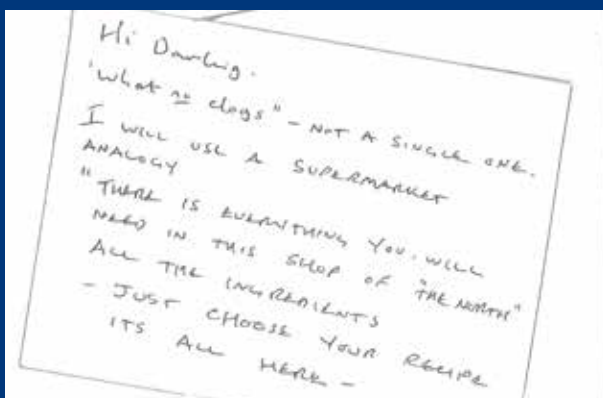 Hi Darling.
'What no clogs" - NOT A SINGLE ONE.
I WILL USE A SUPERMARKET
ANALOGY
"THERE IS EVERYTHING YOU WILL
NEED IN THIS SHOP OF "THE NORTH"
ALL THE INGREDIENTS
- JUST CHOOSE YOUR RECIPE
ITS ALL HERE -